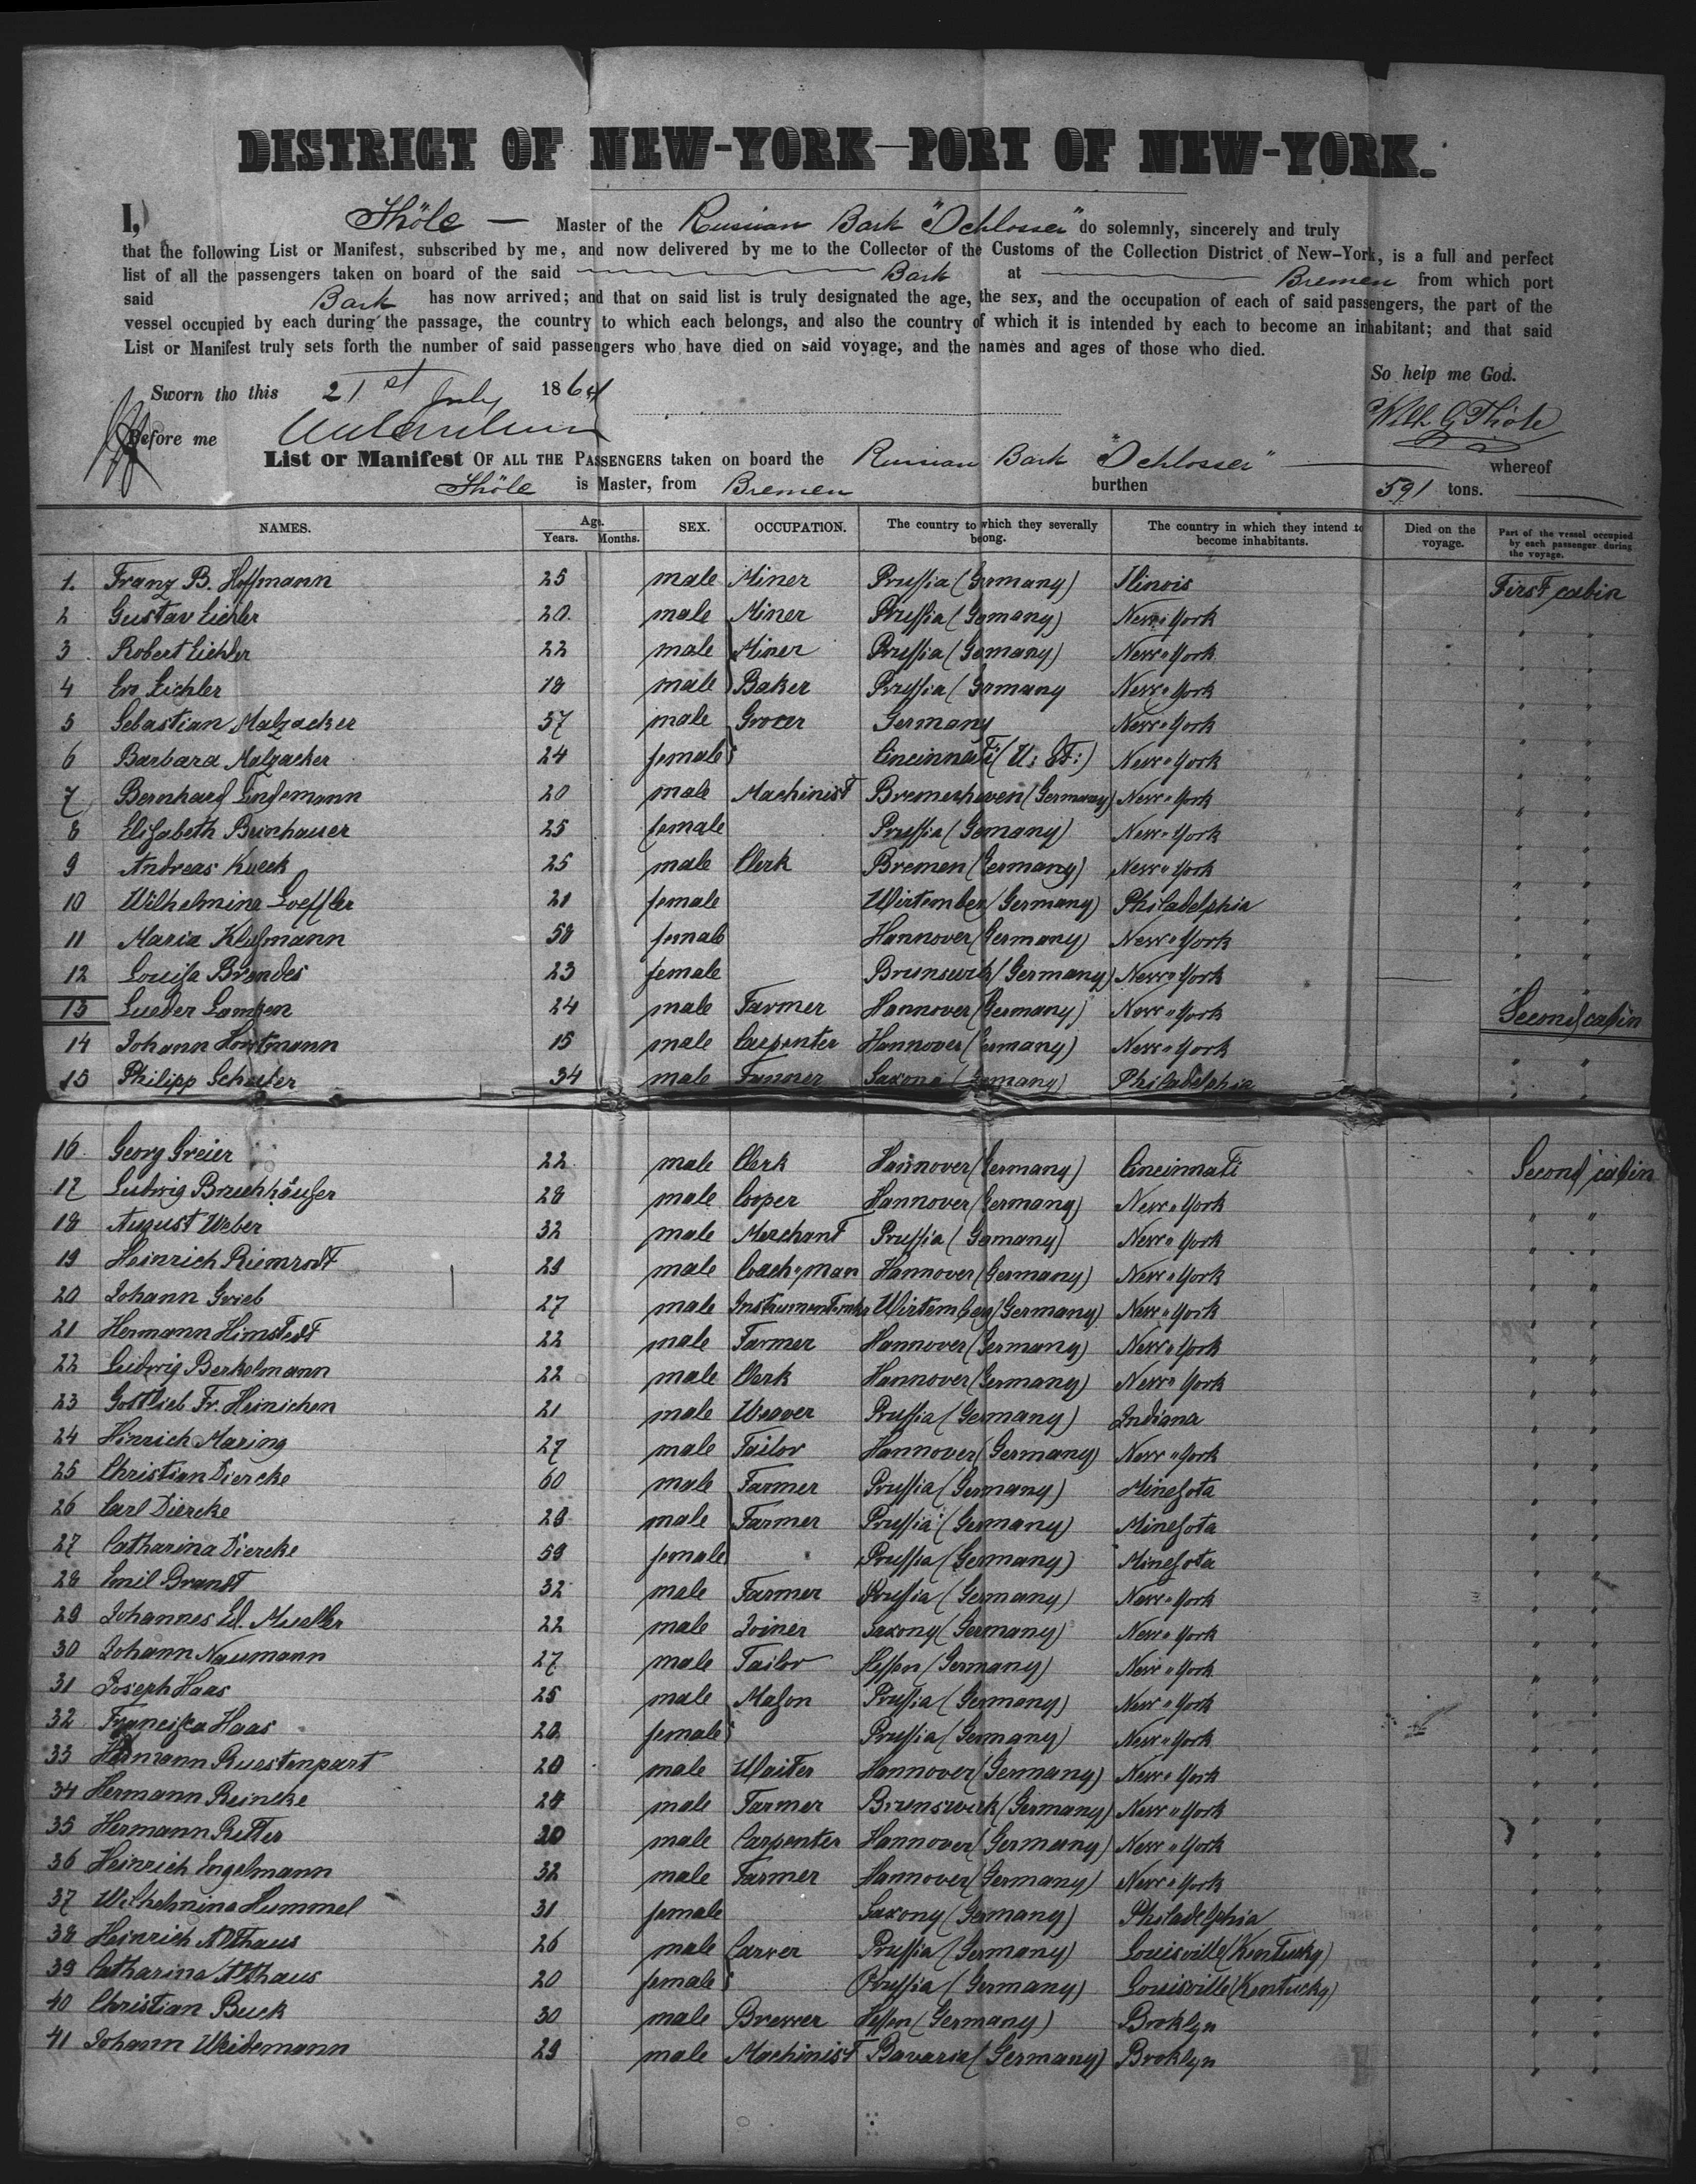 DISTRICT OF NEW-YORK—PORT OF NEW-YORK.
I, Thöle — Master of the Russian Bark "Schlosser" do solemnly, sincerely and truly
that the following List or Manifest, subscribed by me, and now delivered by me to the Collector of the Customs of the Collection District of New-York, is a full and perfect
list of all the passengers taken on board of the said Bark at Bremen from which port
said Bark has now arrived; and that on said list is truly designated the age, the sex, and the occupation of each of said passengers, the part of the
vessel occupied by each during the passage, the country to which each belongs, and also the country of which it is intended by each to become an inhabitant; and that said
List or Manifest truly sets forth the number of said passengers who have died on said voyage, and the names and ages of those who died.
So help me God.
Sworn tho this 21st July 1864
Wilh G Thöle
Before me
List or Manifest OF ALL THE PASSENGERS taken on board the Russian Bark "Schlosser" whereof
Thöle is Master, from Bremen burthen 591 tons.
NAMES. Age. Years. Months. SEX. OCCUPATION. The country to which they severally belong. The country in which they intend to become inhabitants. Died on the voyage. Part of the vessel occupied by each passenger during the voyage.
1. Franz B. Hoffmann 25 male Miner Prussia (Germany) Ilinois First cabin
2 Gustav Eichler 20 male Miner Prussia (Germany) New-York " "
3 Robert Eichler 22 male Miner Prussia (Germany) New-York " "
4 Eichler 18 male Baker Prussia (Germany New-York " "
5 Sebastian Malzacker 57 male Grocer Germany New-York " "
6 Barbara Malzacker 24 female Cincinnati (U. St:) New-York " "
7 Bernhard Lindemann 20 male Machinist Bremerhaven (Germany) New-York " "
8 Elisabeth Brinhauer 25 female Prussia (Germany) New-York " "
9 Andreas Kueck 25 male Clerk Bremen (Germany) New-York " "
10 Wilhelmina Loeffler 21 female Wirtember (Germany) Philadelphia " "
11 Maria Klusmann 58 female Hannover (Germany) New-York " "
12 Louisa Brendes 23 female Brunswik (Germany) New-York " "
13 Lueder 24 male Farmer Hannover (Germany) New-York Second cabin
14 Johann Hortmann 15 male Carpenter Hannover (Germany) New-York " "
15 Philipp Schaefer 34 male Farmer Saxony (Germany) Philadelphia " "
16 Georg Greier 22 male Clerk Hannover (Germany) Cincinnati Second cabin
17 Ludwig Bruchhäuser 28 male Cooper Hannover (Germany) New-York " "
18 August Weber 32 male Merchant Prussia (Germany) New-York " "
19 Heinrich Riemrodt 29 male Coach-man Hannover (Germany) New-York " "
20 Johann Grieb 27 male Wirtemberg (Germany) New-York " "
21 Hermann Himstedt 22 male Farmer Hannover (Germany) New-York " "
22 Ludwig Berkelmann 22 male Clerk Hannover (Germany) New-York " "
23 Gottlieb Fr. Heinichen 21 male Weaver Prussia (Germany) Indiana " "
24 Hinrich Maring 27 male Tailor Hannover (Germany) New-York " "
25 Christian Diercke 60 male Farmer Prussia (Germany) Minesota " "
26 Carl Diercke 28 male Farmer Prussia (Germany) Minesota " "
27 Catharina Diercke 59 female Prussia (Germany) Minesota " "
28 Emil Brandt 32 male Farmer Prussia (Germany) New-York " "
29 Johannes Ed. Mueller 22 male Joiner Saxony (Germany) New-York " "
30 Johann Naumann 27 male Tailor Hessen (Germany) New-York " "
31 Joseph Haas 25 male Mason Prussia (Germany) New-York " "
32 Francisca Haas 20 female Prussia (Germany) New-York " "
33 Hermann Ruestenpart 20 male Waiter Hannover (Germany) New-York " "
34 Hermann Reincke 24 male Farmer Brunswick (Germany) New-York " "
35 Hermann Ritter 20 male Carpenter Hannover (Germany) New-York " "
36 Heinrich Engelmann 32 male Farmer Hannover (Germany) New-York " "
37 Wilhelmina Hummel 31 female Saxony (Germany) Philadelphia " "
38 Heinrich Althaus 26 male Carver Prussia (Germany) Louisville (Kentucky) " "
39 Catharina Althaus 20 female Prussia (Germany) Louisville (Kentucky) " "
40 Christian Buck 30 male Brewer Hessen (Germany) Brooklyn " "
41 Johann Weidemann 29 male Machinist Bavaria (Germany) Broklyn " "